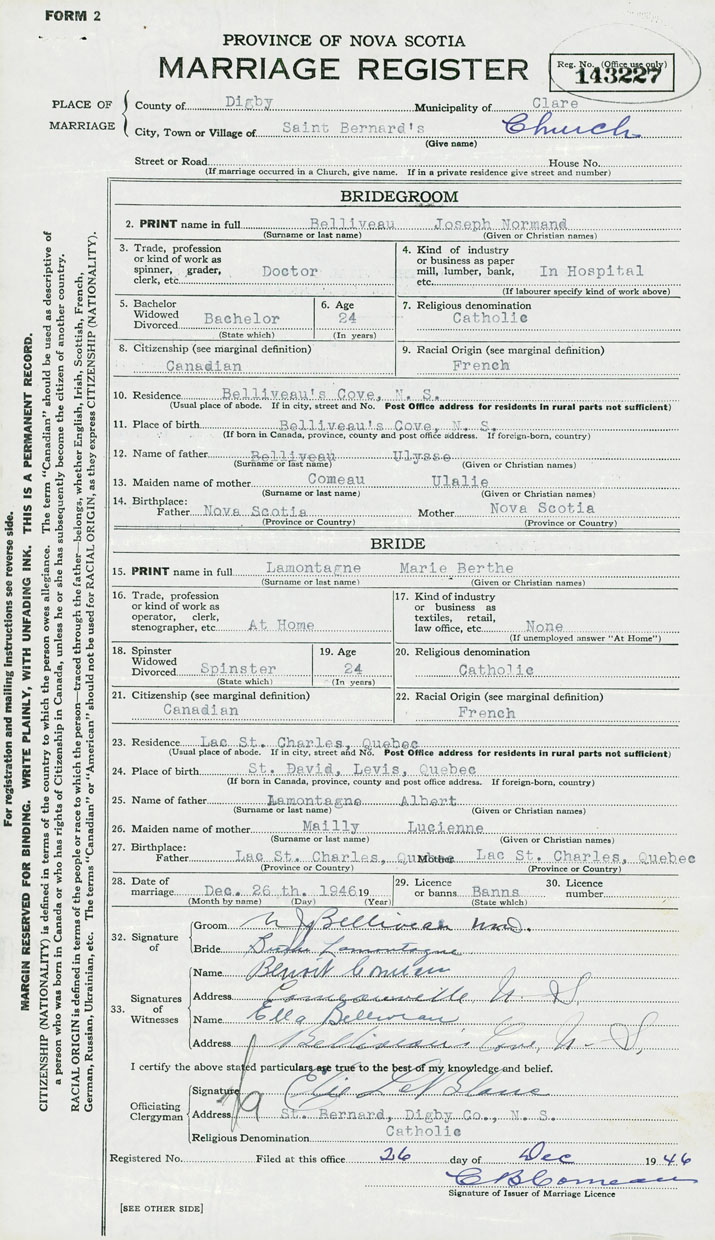 FORM 2
PROVINCE OF NOVA SCOTIA
MARRIAGE REGISTER
Reg. No. (Office use only)
143227
PLACE OF MARRIAGE
County of Digby Municipality of Clare
City, Town or Village of Saint Bernard's Church
(Give name)
Street or Road House No.
(If marriage occurred in a Church, give name. If in a private residence give street and number)
BRIDEGROOM
2. PRINT name in full Belliveau Joseph Normand
(Surname or last name) (Given or Christian names)
3. Trade, profession or kind of work as spinner, grader, clerk, etc. Doctor
4. Kind of industry or business as paper mill, lumber, bank, etc. In Hospital
(If labourer specify kind of work above)
5. Bachelor Widowed Divorced Bachelor
(State which)
6. Age 24
(In years)
7. Religious denomination
Catholic
8. Citizenship (see marginal definition)
Canadian
9. Racial Origin (see marginal definition)
French
10. Residence Belliveau's Cove, N. S.
(Usual place of abode. If in city, street and No. Post Office address for residents in rural parts not sufficient)
11. Place of birth Belliveau's Cove, N. S.
(If born in Canada, province, county and post office address. If foreign-born, country)
12. Name of father Belliveau Ulysse
(Surname or last name) (Given or Christian names)
13. Maiden name of mother Comeau Ulalie
(Surname or last name) (Given or Christian names)
14. Birthplace:
Father Nova Scotia Mother Nova Scotia
(Province or Country) (Province or Country)
BRIDE
15. PRINT name in full Lamontagne Marie Berthe
(Surname or last name) (Given or Christian names)
16. Trade, profession or kind of work as operator, clerk, stenographer, etc. At Home
17. Kind of industry or business as textiles, retail, law office, etc. None
(If unemployed answer "At Home")
18. Spinster Widowed Divorced Spinster
(State which)
19. Age 24
(In years)
20. Religious denomination
Catholic
21. Citizenship (see marginal definition)
Canadian
22. Racial Origin (see marginal definition)
French
23. Residence Lac St. Charles, Quebec
(Usual place of abode. If in city, street and No. Post Office address for residents in rural parts not sufficient)
24. Place of birth St. David, Levis, Quebec
(If born in Canada, province, county and post office address. If foreign-born, country)
25. Name of father Lamontagne Albert
(Surname or last name) (Given or Christian names)
26. Maiden name of mother Mailly Lucienne
(Surname or last name) (Given or Christian names)
27. Birthplace:
Father Lac St. Charles, Quebec Mother Lac St. Charles, Quebec
(Province or Country) (Province or Country)
28. Date of marriage Dec. 26 th. 1946 19
(Month by name) (Day) (Year)
29. Licence or banns Banns
(State which)
30. Licence number
32. Signature of
Groom N J Belliveau M.D.
Bride Berthe Lamontagne
33. Signatures of Witnesses
Name Benoit Comeau
Address Comeauville N. S.
Name Ella Belliveau
Address Belliveau's Cove, N. S.
I certify the above stated particulars are true to the best of my knowledge and belief.
Officiating Clergyman
Signature Elie LeBlanc
Address St. Bernard, Digby Co., N. S.
Religious Denomination Catholic
Registered No. Filed at this office 26 day of Dec 1946
C B Comeau
Signature of Issuer of Marriage Licence
[SEE OTHER SIDE]
For registration and mailing instructions see reverse side.
MARGIN RESERVED FOR BINDING. WRITE PLAINLY, WITH UNFADING INK. THIS IS A PERMANENT RECORD.
CITIZENSHIP (NATIONALITY) is defined in terms of the country to which the person owes allegiance. The term "Canadian" should be used as descriptive of
a person who was born in Canada or who has rights of Citizenship in Canada, unless he or she has subsequently become the citizen of another country.
RACIAL ORIGIN is defined in terms of the people or race to which the person—traced through the father—belongs, whether English, Irish, Scottish, French,
German, Russian, Ukrainian, etc. The terms "Canadian" or "American" should not be used for RACIAL ORIGIN, as they express CITIZENSHIP (NATIONALITY).